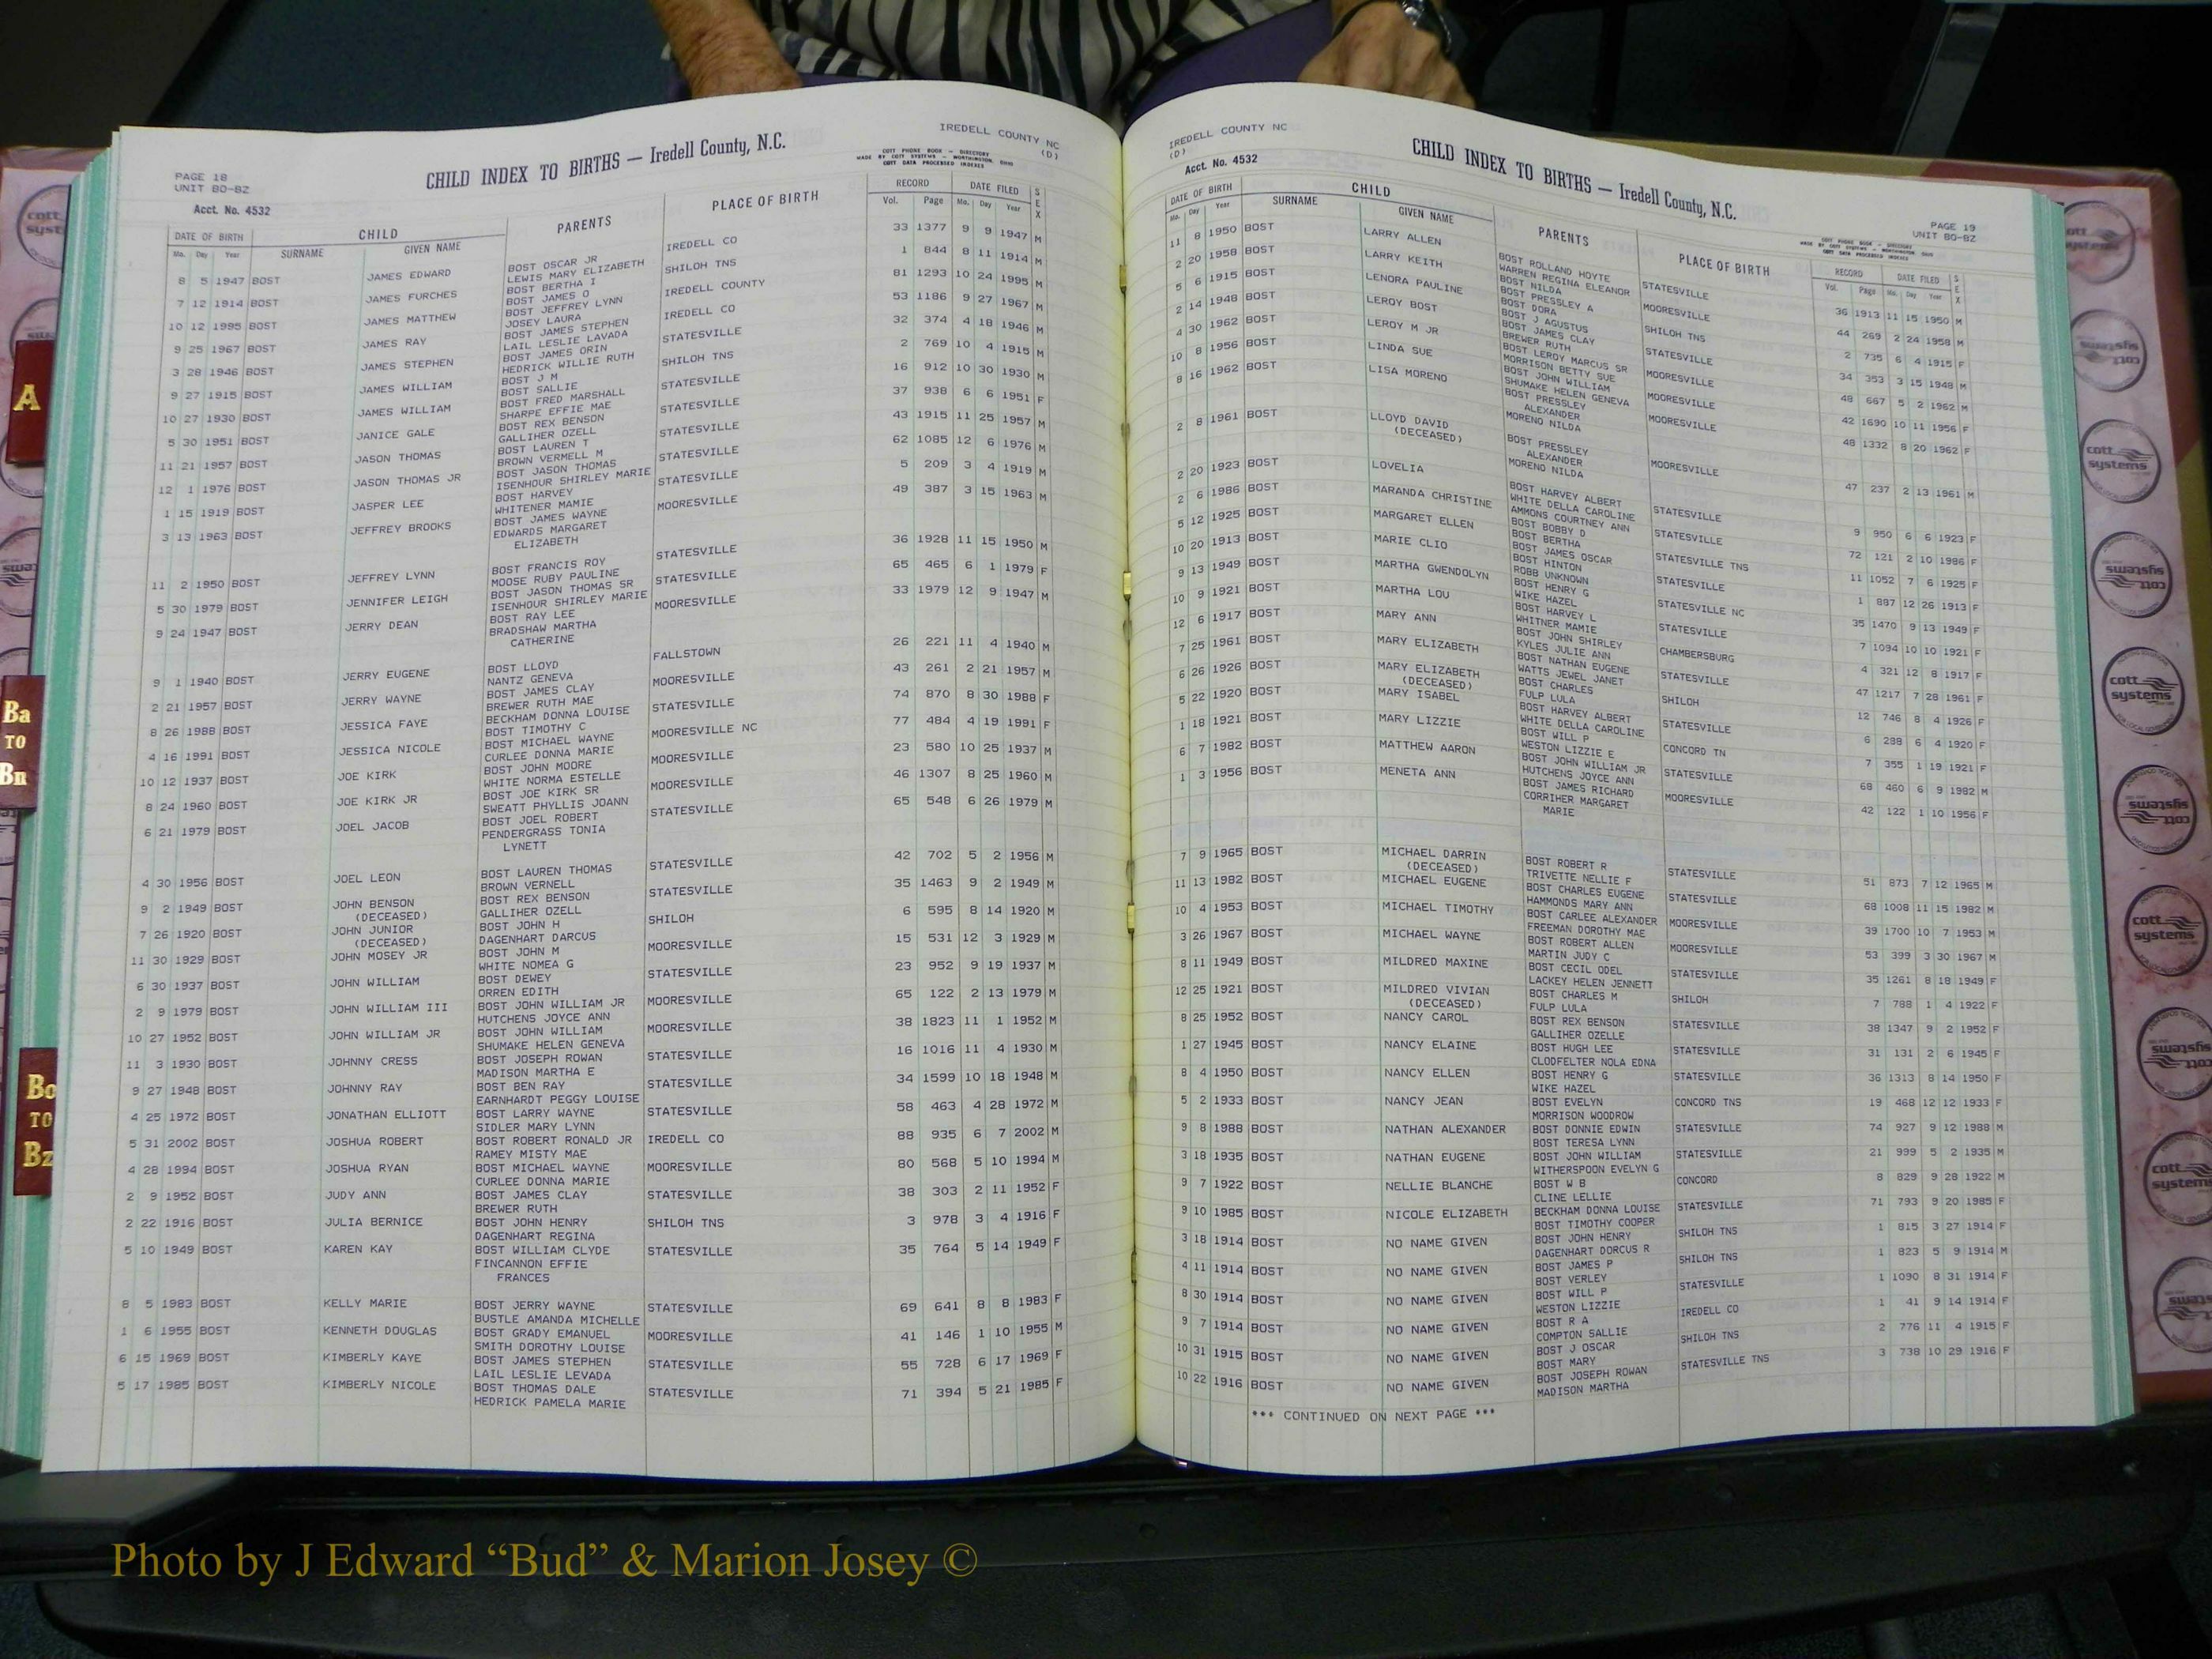 IREDELL COUNTY NC
(D)
CHILD INDEX TO BIRTHS — Iredell County, N.C.
COTT PHONE BOOK - DIRECTORY
MADE BY COTT SYSTEMS - WORTHINGTON, OHIO
COTT DATA PROCESSED INDEXES
PAGE 18
UNIT BO-BZ
Acct. No. 4532
DATE OF BIRTH CHILD PARENTS PLACE OF BIRTH RECORD DATE FILED SEX
Mo. Day Year SURNAME GIVEN NAME Vol. Page Mo. Day Year
8 5 1947 BOST JAMES EDWARD BOST OSCAR JR IREDELL CO 33 1377 9 9 1947 M
LEWIS MARY ELIZABETH
7 12 1914 BOST JAMES FURCHES BOST BERTHA I SHILOH TNS 1 844 8 11 1914 M
BOST JAMES O
10 12 1995 BOST JAMES MATTHEW BOST JEFFREY LYNN IREDELL COUNTY 81 1293 10 24 1995 M
JOSEY LAURA
9 25 1967 BOST JAMES RAY BOST JAMES STEPHEN IREDELL CO 53 1186 9 27 1967 M
LAIL LESLIE LAVADA
3 28 1946 BOST JAMES STEPHEN BOST JAMES ORIN STATESVILLE 32 374 4 18 1946 M
HEDRICK WILLIE RUTH
9 27 1915 BOST JAMES WILLIAM BOST J M SHILOH TNS 2 769 10 4 1915 M
BOST SALLIE
10 27 1930 BOST JAMES WILLIAM BOST FRED MARSHALL STATESVILLE 16 912 10 30 1930 M
SHARPE EFFIE MAE
5 30 1951 BOST JANICE GALE BOST REX BENSON STATESVILLE 37 938 6 6 1951 F
GALLIHER OZELL
11 21 1957 BOST JASON THOMAS BOST LAUREN T STATESVILLE 43 1915 11 25 1957 M
BROWN VERMELL M
12 1 1976 BOST JASON THOMAS JR BOST JASON THOMAS STATESVILLE 62 1085 12 6 1976 M
ISENHOUR SHIRLEY MARIE
1 15 1919 BOST JASPER LEE BOST HARVEY STATESVILLE 5 209 3 4 1919 M
WHITENER MAMIE
3 13 1963 BOST JEFFREY BROOKS BOST JAMES WAYNE MOORESVILLE 49 387 3 15 1963 M
EDWARDS MARGARET
ELIZABETH
11 2 1950 BOST JEFFREY LYNN BOST FRANCIS ROY STATESVILLE 36 1928 11 15 1950 M
MOOSE RUBY PAULINE
5 30 1979 BOST JENNIFER LEIGH BOST JASON THOMAS SR STATESVILLE 65 465 6 1 1979 F
ISENHOUR SHIRLEY MARIE
9 24 1947 BOST JERRY DEAN BOST RAY LEE MOORESVILLE 33 1979 12 9 1947 M
BRADSHAW MARTHA
CATHERINE
9 1 1940 BOST JERRY EUGENE BOST LLOYD FALLSTOWN 26 221 11 4 1940 M
NANTZ GENEVA
2 21 1957 BOST JERRY WAYNE BOST JAMES CLAY MOORESVILLE 43 261 2 21 1957 M
BREWER RUTH MAE
8 26 1988 BOST JESSICA FAYE BECKHAM DONNA LOUISE STATESVILLE 74 870 8 30 1988 F
BOST TIMOTHY C
4 16 1991 BOST JESSICA NICOLE BOST MICHAEL WAYNE MOORESVILLE NC 77 484 4 19 1991 F
CURLEE DONNA MARIE
10 12 1937 BOST JOE KIRK BOST JOHN MOORE MOORESVILLE 23 580 10 25 1937 M
WHITE NORMA ESTELLE
8 24 1960 BOST JOE KIRK JR BOST JOE KIRK SR MOORESVILLE 46 1307 8 25 1960 M
SWEATT PHYLLIS JOANN
6 21 1979 BOST JOEL JACOB BOST JOEL ROBERT STATESVILLE 65 548 6 26 1979 M
PENDERGRASS TONIA
LYNETT
4 30 1956 BOST JOEL LEON BOST LAUREN THOMAS STATESVILLE 42 702 5 2 1956 M
BROWN VERNELL
9 2 1949 BOST JOHN BENSON BOST REX BENSON STATESVILLE 35 1463 9 2 1949 M
(DECEASED) GALLIHER OZELL
7 26 1920 BOST JOHN JUNIOR BOST JOHN H SHILOH 6 595 8 14 1920 M
(DECEASED) DAGENHART DARCUS
11 30 1929 BOST JOHN MOSEY JR BOST JOHN M MOORESVILLE 15 531 12 3 1929 M
WHITE NOMEA G
6 30 1937 BOST JOHN WILLIAM BOST DEWEY STATESVILLE 23 952 9 19 1937 M
ORREN EDITH
2 9 1979 BOST JOHN WILLIAM III BOST JOHN WILLIAM JR MOORESVILLE 65 122 2 13 1979 M
HUTCHENS JOYCE ANN
10 27 1952 BOST JOHN WILLIAM JR BOST JOHN WILLIAM MOORESVILLE 38 1823 11 1 1952 M
SHUMAKE HELEN GENEVA
11 3 1930 BOST JOHNNY CRESS BOST JOSEPH ROWAN STATESVILLE 16 1016 11 4 1930 M
MADISON MARTHA E
9 27 1948 BOST JOHNNY RAY BOST BEN RAY STATESVILLE 34 1599 10 18 1948 M
EARNHARDT PEGGY LOUISE
4 25 1972 BOST JONATHAN ELLIOTT BOST LARRY WAYNE STATESVILLE 58 463 4 28 1972 M
SIDLER MARY LYNN
5 31 2002 BOST JOSHUA ROBERT BOST ROBERT RONALD JR IREDELL CO 88 935 6 7 2002 M
RAMEY MISTY MAE
4 28 1994 BOST JOSHUA RYAN BOST MICHAEL WAYNE MOORESVILLE 80 568 5 10 1994 M
CURLEE DONNA MARIE
2 9 1952 BOST JUDY ANN BOST JAMES CLAY STATESVILLE 38 303 2 11 1952 F
BREWER RUTH
2 22 1916 BOST JULIA BERNICE BOST JOHN HENRY SHILOH TNS 3 978 3 4 1916 F
DAGENHART REGINA
5 10 1949 BOST KAREN KAY BOST WILLIAM CLYDE STATESVILLE 35 764 5 14 1949 F
FINCANNON EFFIE
FRANCES
8 5 1983 BOST KELLY MARIE BOST JERRY WAYNE STATESVILLE 69 641 8 8 1983 F
BUSTLE AMANDA MICHELLE
1 6 1955 BOST KENNETH DOUGLAS BOST GRADY EMANUEL MOORESVILLE 41 146 1 10 1955 M
SMITH DOROTHY LOUISE
6 15 1969 BOST KIMBERLY KAYE BOST JAMES STEPHEN STATESVILLE 55 728 6 17 1969 F
LAIL LESLIE LEVADA
5 17 1985 BOST KIMBERLY NICOLE BOST THOMAS DALE STATESVILLE 71 394 5 21 1985 F
HEDRICK PAMELA MARIE
IREDELL COUNTY NC
(D)
Acct. No. 4532
CHILD INDEX TO BIRTHS — Iredell County, N.C.
COTT PHONE BOOK - DIRECTORY
MADE BY COTT SYSTEMS - WORTHINGTON, OHIO
COTT DATA PROCESSED INDEXES
PAGE 19
UNIT BO-BZ
DATE OF BIRTH CHILD PARENTS PLACE OF BIRTH RECORD DATE FILED SEX
Mo. Day Year SURNAME GIVEN NAME Vol. Page Mo. Day Year
11 8 1950 BOST LARRY ALLEN BOST ROLLAND HOYTE STATESVILLE 36 1913 11 15 1950 M
WARREN REGINA ELEANOR
2 20 1958 BOST LARRY KEITH BOST NILDA MOORESVILLE 44 269 2 24 1958 M
BOST PRESSLEY A
5 6 1915 BOST LENORA PAULINE BOST DORA SHILOH TNS 2 735 6 4 1915 F
BOST J AGUSTUS
2 14 1948 BOST LEROY BOST BOST JAMES CLAY STATESVILLE 34 353 3 15 1948 M
BREWER RUTH
4 30 1962 BOST LEROY M JR BOST LEROY MARCUS SR MOORESVILLE 48 667 5 2 1962 M
MORRISON BETTY SUE
10 8 1956 BOST LINDA SUE BOST JOHN WILLIAM MOORESVILLE 42 1690 10 11 1956 F
SHUMAKE HELEN GENEVA
8 16 1962 BOST LISA MORENO BOST PRESSLEY MOORESVILLE 48 1332 8 20 1962 F
ALEXANDER
MORENO NILDA
2 8 1961 BOST LLOYD DAVID BOST PRESSLEY MOORESVILLE 47 237 2 13 1961 M
(DECEASED) ALEXANDER
MORENO NILDA
2 20 1923 BOST LOVELIA BOST HARVEY ALBERT STATESVILLE 9 950 6 6 1923 F
WHITE DELLA CAROLINE
2 6 1986 BOST MARANDA CHRISTINE AMMONS COURTNEY ANN STATESVILLE 72 121 2 10 1986 F
BOST BOBBY D
5 12 1925 BOST MARGARET ELLEN BOST BERTHA STATESVILLE TNS 11 1052 7 6 1925 F
BOST JAMES OSCAR
10 20 1913 BOST MARIE CLIO BOST HINTON STATESVILLE 1 887 12 26 1913 F
ROBB UNKNOWN
9 13 1949 BOST MARTHA GWENDOLYN BOST HENRY G STATESVILLE NC 35 1470 9 13 1949 F
WIKE HAZEL
10 9 1921 BOST MARTHA LOU BOST HARVEY L STATESVILLE 7 1094 10 10 1921 F
WHITNER MAMIE
12 6 1917 BOST MARY ANN BOST JOHN SHIRLEY CHAMBERSBURG 4 321 12 8 1917 F
KYLES JULIE ANN
7 25 1961 BOST MARY ELIZABETH BOST NATHAN EUGENE STATESVILLE 47 1217 7 28 1961 F
WATTS JEWEL JANET
6 26 1926 BOST MARY ELIZABETH BOST CHARLES SHILOH 12 746 8 4 1926 F
(DECEASED) FULP LULA
5 22 1920 BOST MARY ISABEL BOST HARVEY ALBERT STATESVILLE 6 288 6 4 1920 F
WHITE DELLA CAROLINE
1 18 1921 BOST MARY LIZZIE BOST WILL P CONCORD TN 7 355 1 19 1921 F
WESTON LIZZIE E
6 7 1982 BOST MATTHEW AARON BOST JOHN WILLIAM JR STATESVILLE 68 460 6 9 1982 M
HUTCHENS JOYCE ANN
1 3 1956 BOST MENETA ANN BOST JAMES RICHARD MOORESVILLE 42 122 1 10 1956 F
CORRIHER MARGARET
MARIE
7 9 1965 BOST MICHAEL DARRIN BOST ROBERT R STATESVILLE 51 873 7 12 1965 M
(DECEASED) TRIVETTE NELLIE F
11 13 1982 BOST MICHAEL EUGENE BOST CHARLES EUGENE STATESVILLE 68 1008 11 15 1982 M
HAMMONDS MARY ANN
10 4 1953 BOST MICHAEL TIMOTHY BOST CARLEE ALEXANDER MOORESVILLE 39 1700 10 7 1953 M
FREEMAN DOROTHY MAE
3 26 1967 BOST MICHAEL WAYNE BOST ROBERT ALLEN MOORESVILLE 53 399 3 30 1967 M
MARTIN JUDY C
8 11 1949 BOST MILDRED MAXINE BOST CECIL ODEL STATESVILLE 35 1261 8 18 1949 F
LACKEY HELEN JENNETT
12 25 1921 BOST MILDRED VIVIAN BOST CHARLES M SHILOH 7 788 1 4 1922 F
(DECEASED) FULP LULA
8 25 1952 BOST NANCY CAROL BOST REX BENSON STATESVILLE 38 1347 9 2 1952 F
GALLIHER OZELLE
1 27 1945 BOST NANCY ELAINE BOST HUGH LEE STATESVILLE 31 131 2 6 1945 F
CLODFELTER NOLA EDNA
8 4 1950 BOST NANCY ELLEN BOST HENRY G STATESVILLE 36 1313 8 14 1950 F
WIKE HAZEL
5 2 1933 BOST NANCY JEAN BOST EVELYN CONCORD TNS 19 468 12 12 1933 F
MORRISON WOODROW
9 8 1988 BOST NATHAN ALEXANDER BOST DONNIE EDWIN STATESVILLE 74 927 9 12 1988 M
BOST TERESA LYNN
3 18 1935 BOST NATHAN EUGENE BOST JOHN WILLIAM STATESVILLE 21 999 5 2 1935 M
WITHERSPOON EVELYN G
9 7 1922 BOST NELLIE BLANCHE BOST W B CONCORD 8 829 9 28 1922 M
CLINE LELLIE
9 10 1985 BOST NICOLE ELIZABETH BECKHAM DONNA LOUISE STATESVILLE 71 793 9 20 1985 F
BOST TIMOTHY COOPER
3 18 1914 BOST NO NAME GIVEN BOST JOHN HENRY SHILOH TNS 1 815 3 27 1914 F
DAGENHART DORCUS R
4 11 1914 BOST NO NAME GIVEN BOST JAMES P SHILOH TNS 1 823 5 9 1914 M
BOST VERLEY
8 30 1914 BOST NO NAME GIVEN BOST WILL P STATESVILLE 1 1090 8 31 1914 F
WESTON LIZZIE
9 7 1914 BOST NO NAME GIVEN BOST R A IREDELL CO 1 41 9 14 1914 F
COMPTON SALLIE
10 31 1915 BOST NO NAME GIVEN BOST J OSCAR SHILOH TNS 2 776 11 4 1915 F
BOST MARY
10 22 1916 BOST NO NAME GIVEN BOST JOSEPH ROWAN STATESVILLE TNS 3 738 10 29 1916 F
MADISON MARTHA
*** CONTINUED ON NEXT PAGE ***
A
Ba
TO
Bn
Bo
TO
Bz
cott
systems
Photo by J Edward “Bud” & Marion Josey ©